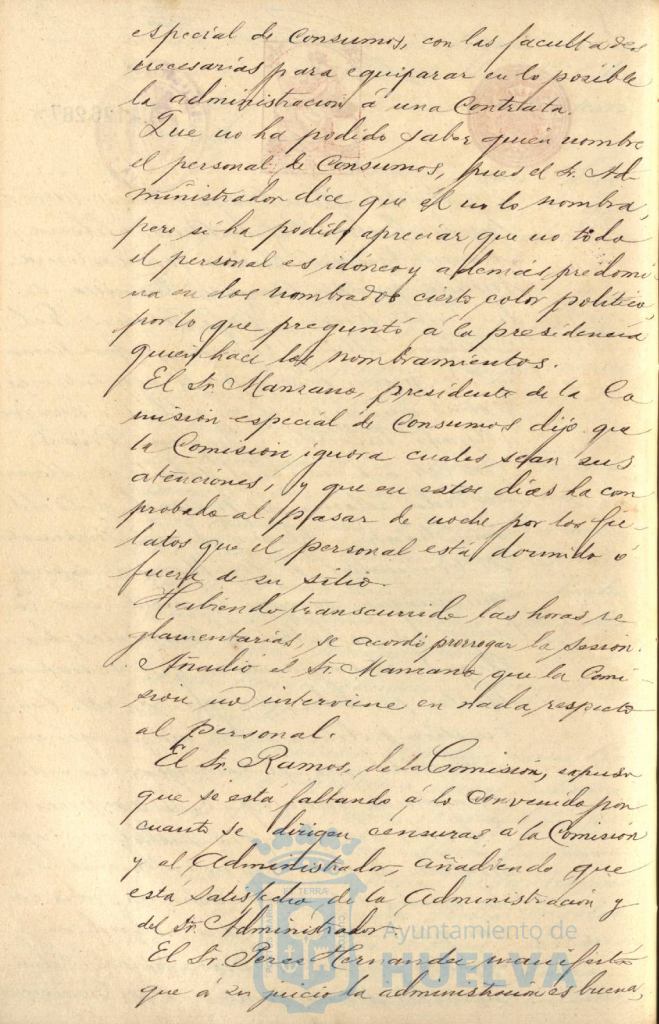 especial de Consumos, con las facultades
necesarias para equiparar en lo posible
la administracion á una Contrata.
Que no ha podido saber quien nombre
el personal de Consumos, pues el Sr. Ad-
ministrador dice que él no lo nombra,
pero si ha podido apreciar que no todo
el personal es idóneo y además predomi
na en los nombrados cierto color politico,
por lo que preguntó á la presidencia
quien hace los nombramientos.
El Sr. Manzano, presidente de la Co
misión especial de Consumos dijo que
la Comision ignora cuales sean sus
atenciones, y que en estos dias ha com
probado al pasar de noche por los fie
latos que el personal está dormido ó
fuera de su sitio.
Habiendo transcurrido las horas re
glamentarias, se acordó prorrogar la sesion.
Añadió el Sr. Manzano que la Comi
sion no interviene en nada respecto
al personal.
El Sr. Ramos, de la Comisión, expuso
que se está faltando á lo convenido por
cuanto se dirigen censuras á la Comisión
y al Administrador, añadiendo que
está satisfecho de la Administración y
del Sr. Administrador.
El Sr. Perez Hernandez manifestó
que á su juicio la administracion es buena,
Ayuntamiento de
HUELVA